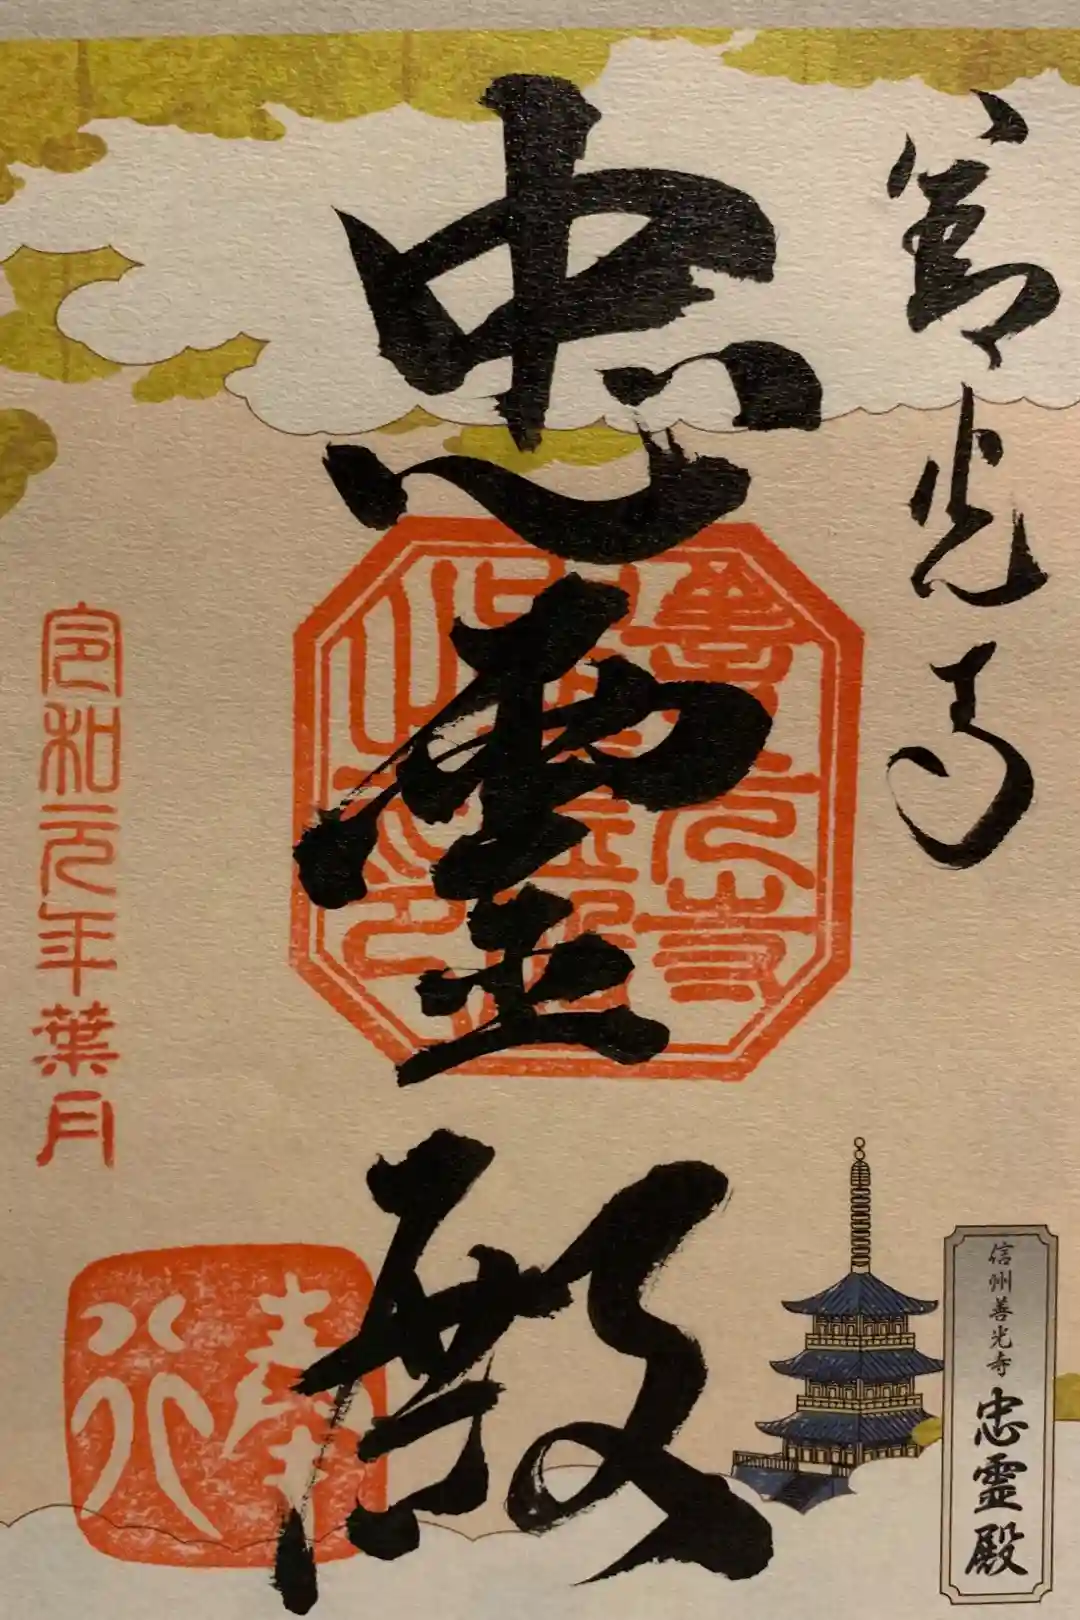 善光寺
忠霊殿
令和元年葉月
奉
信州善光寺
忠霊殿